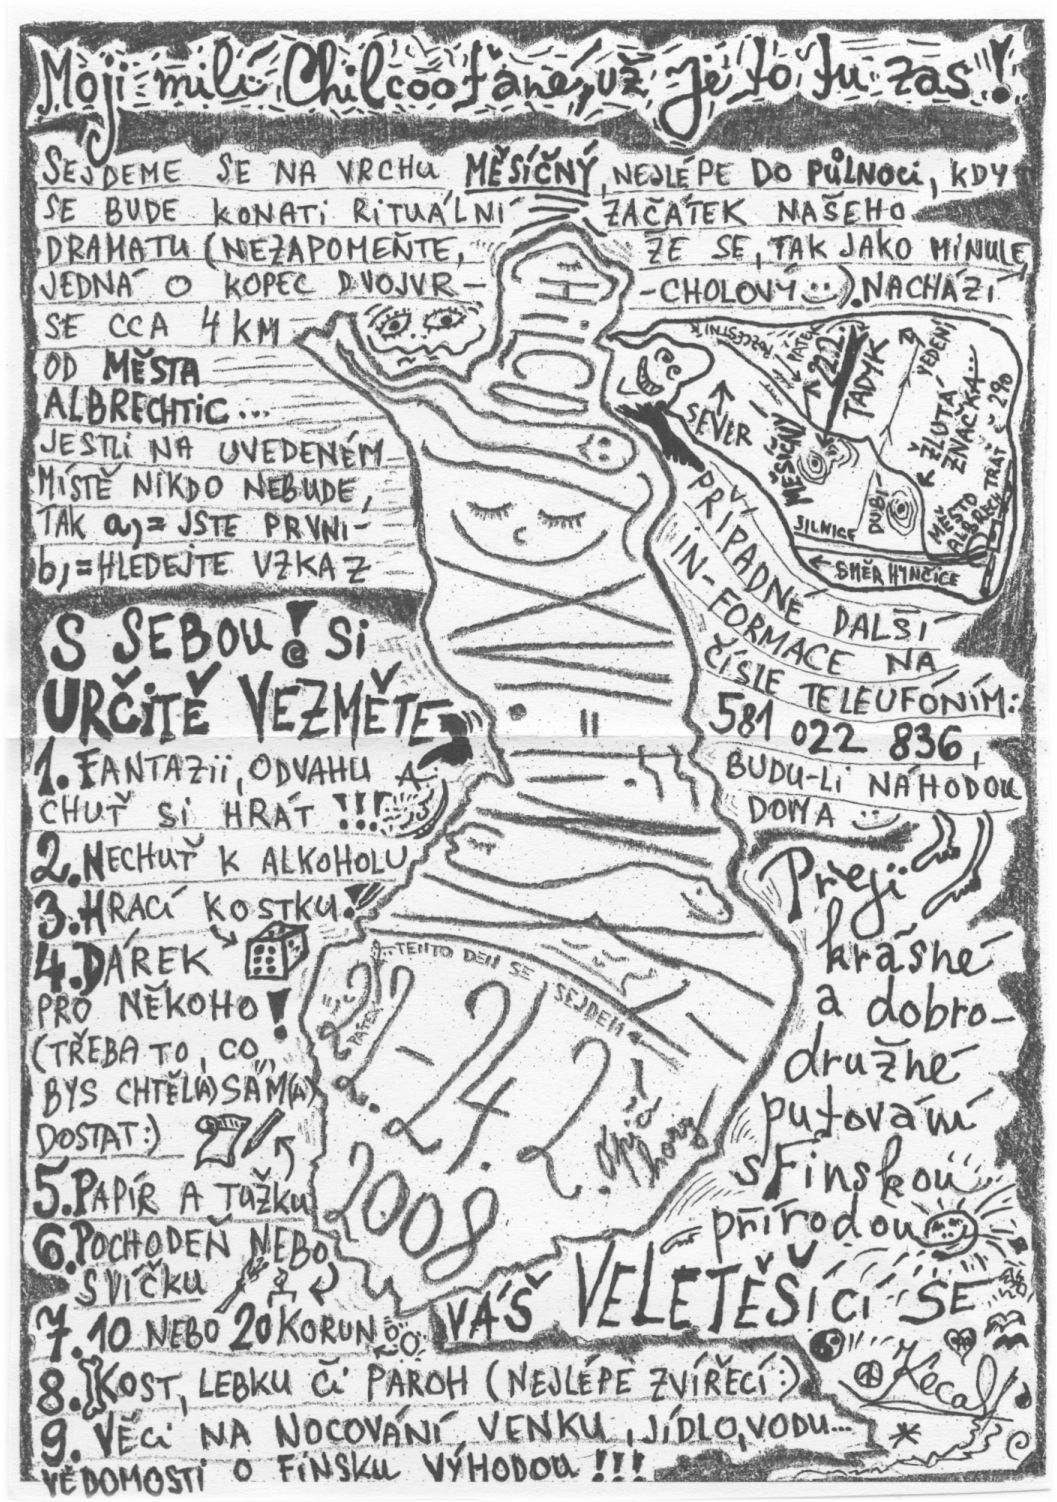 Moji milí Chilcooťané, už je to tu zas!
SEJDEME SE NA VRCHU MĚSÍČNÝ, NEJLÉPE DO PŮLNOCI, KDY
SE BUDE KONATI RITUÁLNÍ ZAČÁTEK NAŠEHO
DRAMATU (NEZAPOMEŇTE, ŽE SE, TAK JAKO MINULE,
JEDNÁ O KOPEC DVOJVR-
-CHOLOVÝ). NACHÁZÍ
SE CCA 4 KM
OD MĚSTA
ALBRECHTIC...
JESTLI NA UVEDENÉM
MÍSTĚ NIKDO NEBUDE,
TAK a,= JSTE PRVNÍ-
b,= HLEDEJTE VZKAZ
CHICO
ROZCESTNÍK
PÁTEK
22.2.
TADYK
VEDENÍ
ŽLUTÁ
ZNAČKA...
TRAŤ Č 290
SEVER
MĚSÍČNÝ
SILNICE
DUBÍ
MĚSTO
ALBRECH
SMĚR HYNČICE
PŘÍPADNÉ DALŠÍ
IN-FORMACE NA
ČÍSLE TELEUFÓNÍM:
581 022 836,
BUDU-LI NÁHODOU
DOMA
S SEBOU! @ SI
URČITĚ VEZMĚTE
1. FANTAZII, ODVAHU A
CHUŤ SI HRÁT !!!
2. NECHUŤ K ALKOHOLU
3. HRACÍ KOSTKU!
4. DÁREK
PRO NĚKOHO!
(TŘEBA TO, CO
BYS CHTĚL(A) SÁM(A)
DOSTAT:)
5. PAPÍR A TUŽKU
6. POCHODEŇ NEBO
SVÍČKU
7. 10 NEBO 20 KORUN
8. KOST, LEBKU ČI PAROH (NEJLÉPE ZVÍŘECÍ:)
9. VĚCI NA NOCOVÁNÍ VENKU, JÍDLO, VODU...
VĚDOMOSTI O FINSKU VÝHODOU !!!
TENTO DEN SE SEJDEM
PÁTEK
22.-24.2.
2008
Přeji
krásné
a dobro-
družné
putování
s Finskou
přírodou
VÁŠ VELETĚŠÍCÍ SE
Kecal